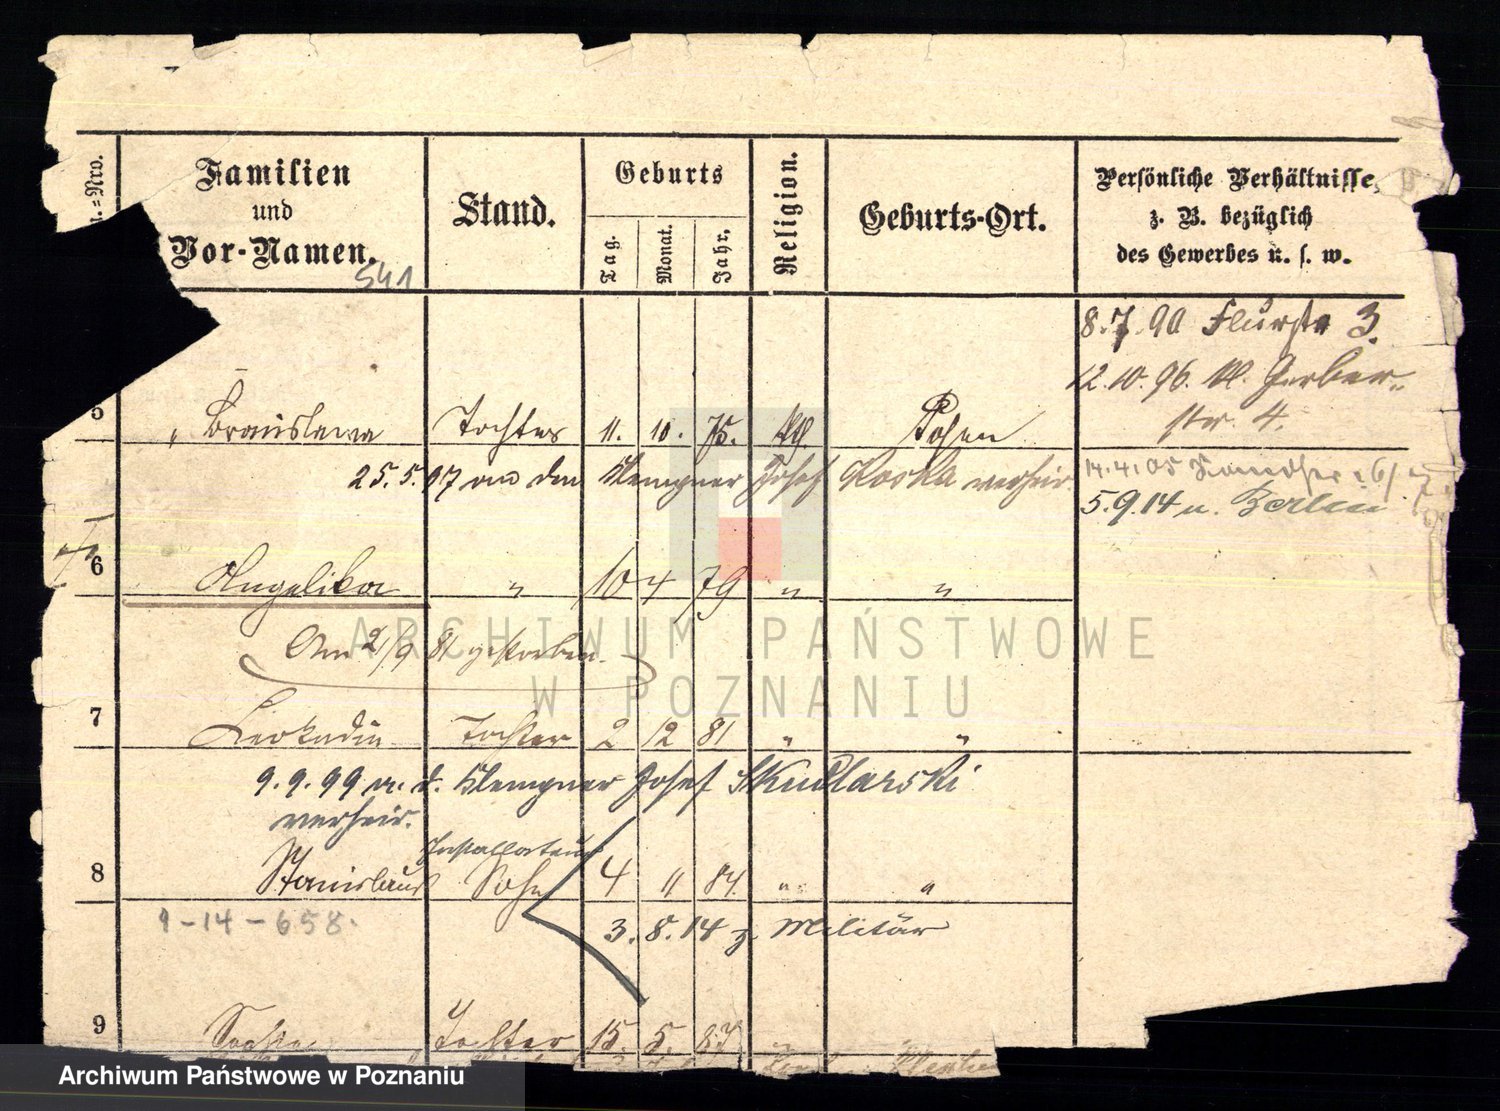 Nro.
Familien
und
Vor-Namen.
541
Stand.
Geburts
Tag.
Monat.
Jahr.
Religion.
Geburts-Ort.
Persönliche Verhältnisse,
z. B. bezüglich
des Gewerbes u. s. w.
8.7.90 Flurstr 3.
12.10.96. Kl. Gerber-
str. 4.
5 Bronislawa Tochter 11. 10. 75. Posen
25.5.97 den Klempner Josef Koska verheir.
14.4.05
5.9.14 n. Berlin
6 Angelika " 10 4 79 " "
Am 2/9 81 gestorben.
7 Leokadia Tochter 2 12 81 " "
9.9.99 m. d. Klempner Josef Skudlarski
verheir.
Installateur
8 Stanislaus Sohn 4 11 84. " "
9-14-658.
3.8.14 z. Militär
9 Tochter 15. 5. 87
ARCHIWUM PAŃSTWOWE
W POZNANIU
Archiwum Państwowe w Poznaniu